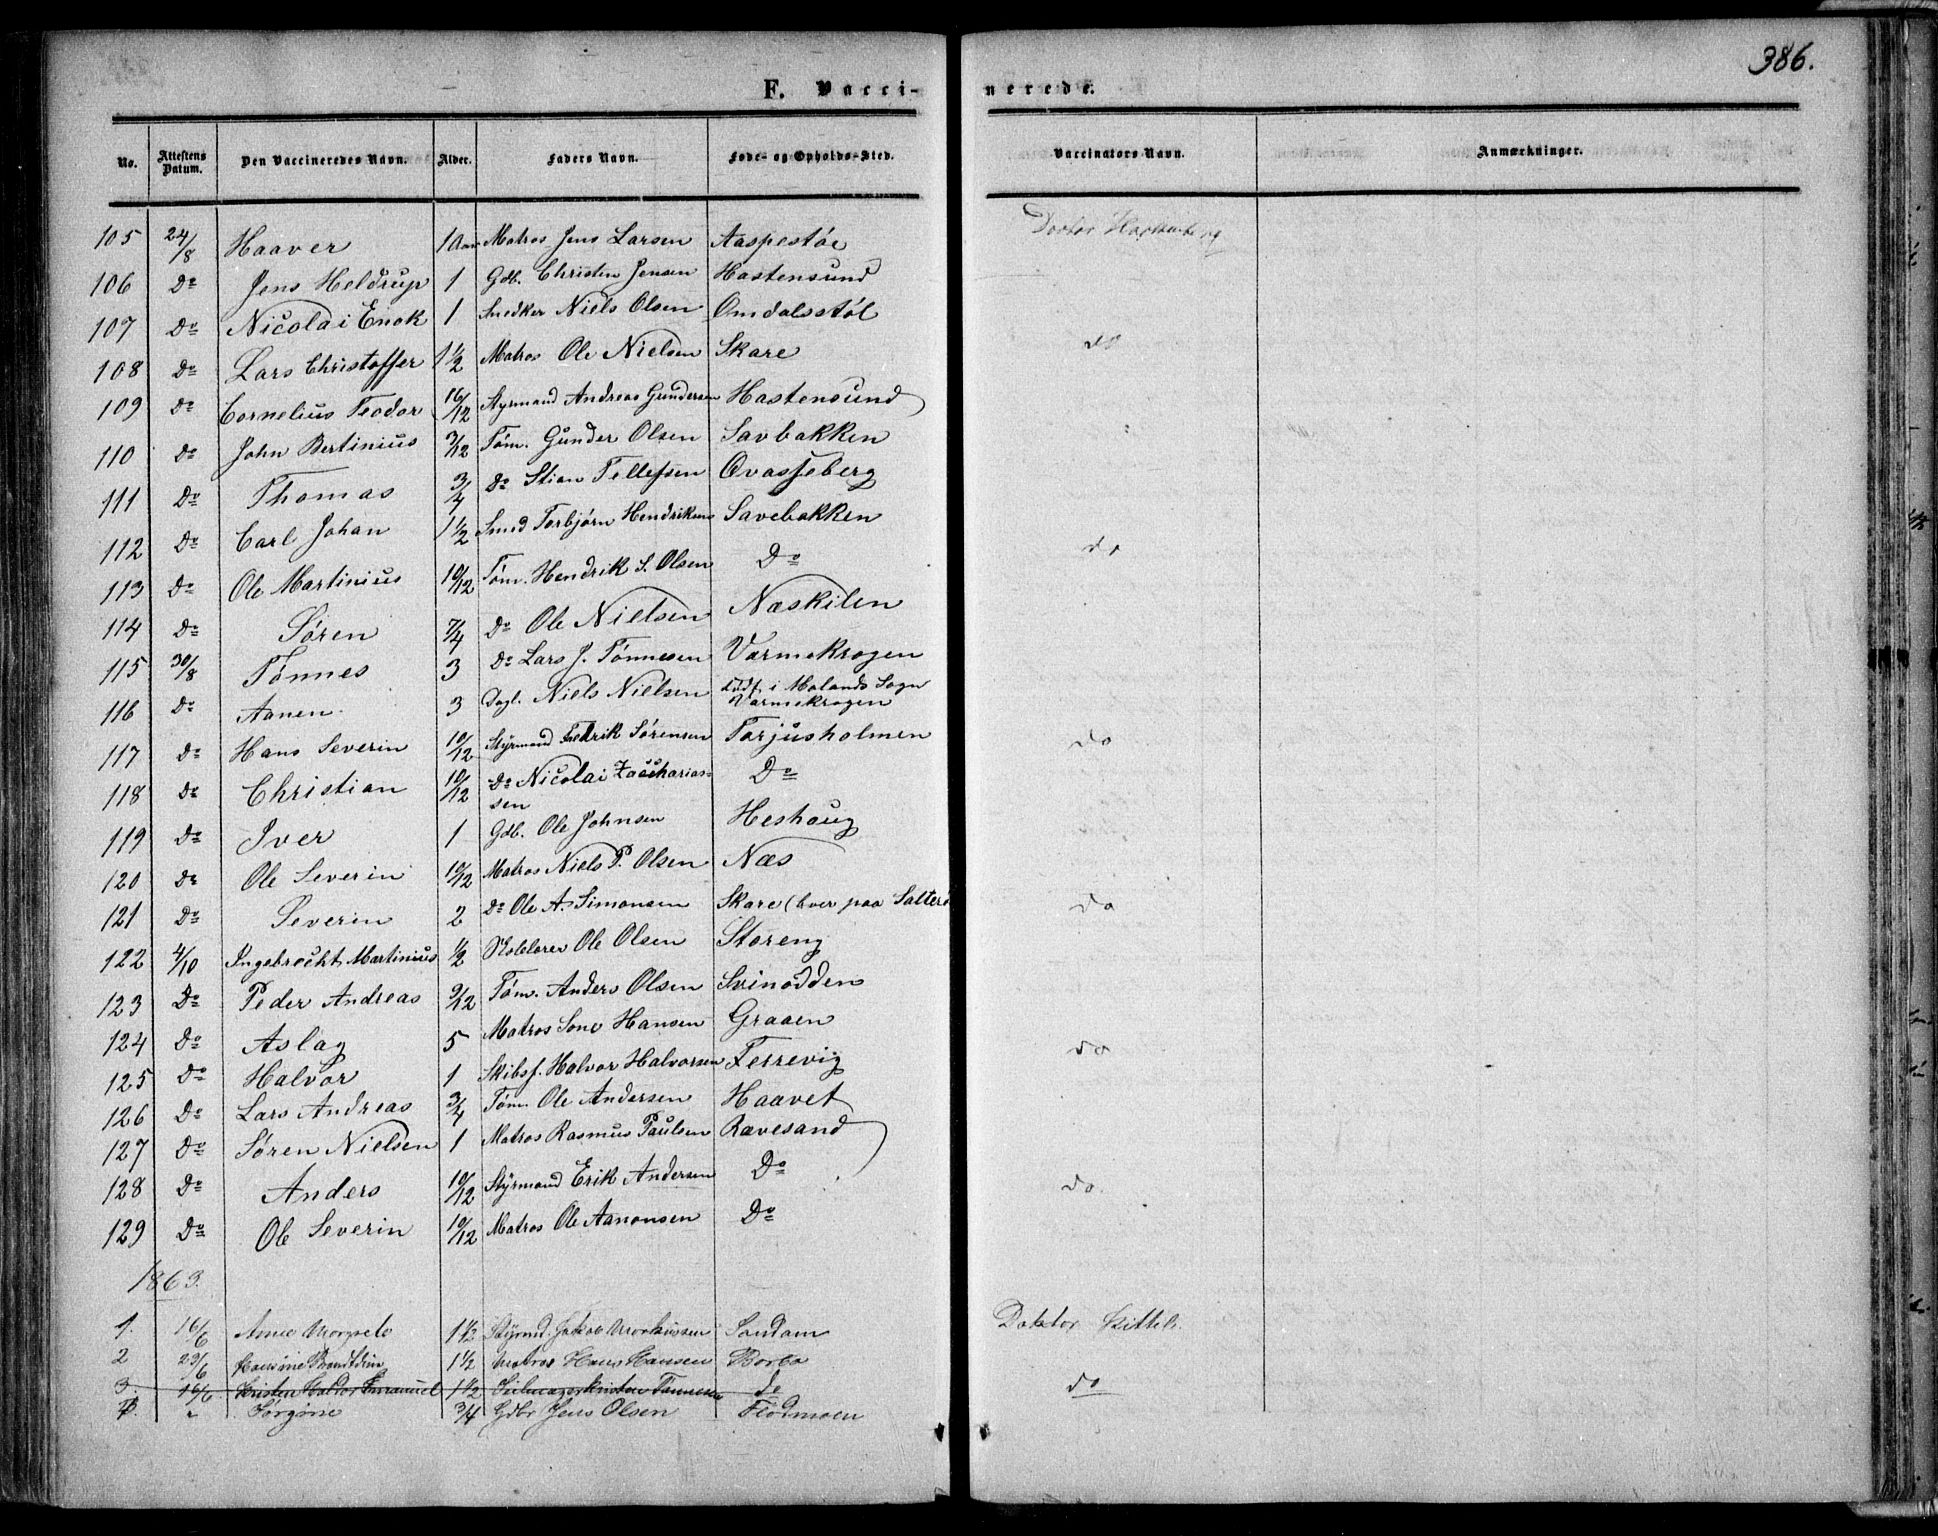 386.
F. Vacci-nerede.
No. Attestens Datum. Den Vaccineredes Navn. Alder. Faders Navn. Føde- og Opholds-Sted. Vaccinators Navn. Anmærkninger.
105 24/8 Haaver 1 Aar Matros Jens Larsen Aaspestøe Doctor
106 Do Jens Heldrup 1 Gdb. Christen Jensen Hastensund
107 Do Nicolai Enok 1 Snedker Niels Olsen Omdalsstøl do
108 Do Lars Christoffer 1 1/2 Matros Ole Nielsen Skare
109 Do Cornelius Teodor 16/12 Styrmand Andreas Gundersen Hastensund
110 Do John Bertinius 3/12 Tøm. Gunder Olsen Savbakken
111 Do Thomas 3/4 Do Stian Tellefsen Qvasjeberg
112 Do Carl Johan 1 1/2 Smed Torbjørn Hendriksen Savebakken do
113 Do Ole Martinius 10/12 Tøm. Hendrik S. Olsen Do
114 Do Søren 7/4 Do Ole Nielsen Næskilen
115 30/8 Tønnes 3 Do Lars J. Tønnesen Varmekrogen
116 Do Aanen 3 Dagl. Niels Nielsen født i Molands Sogn
Varmekrogen
117 Do Hans Severin 10/12 Styrmand Fredrik Sørensen Torjusholmen do
118 Do Christian 10/12 Do Nicolai Zacharias-
sen Do
119 Do Iver 1 Gdb. Ole Johnsen Heshoug
120 Do Ole Severin 10/12 Matros Niels P. Olsen Næs
121 Do Severin 2 Do Ole A. Simonsen Skare (bver paa Salterø do
122 4/10 Ingebrecht Martinius 1/2 Ole Olsen Storeng
123 Do Peder Andreas 9/12 Tøm. Anders Olsen Svinodden
124 Do Aslag 5 Matros Sone Hansen Graaen do
125 Do Halvor 1 Skibsf. Halvor Halvorsen Ferrevig
126 Do Lars Andreas 3/4 Tøm. Ole Andersen Haavet
127 Do Søren Nielsen 1 Matros Rasmus Paulsen Rævesand
128 Do Anders 10/12 Styrmand Erik Andersen Do do
129 Do Ole Severin 10/12 Matros Ole Aanonsen Do
1863.
1. 16/6 Anne 1 1/2 Styrmd. Jakob Markussen Sandum Doktor
2 23/6 1 1/2 Matros Hans Hansen Borbo
3. 16/6 Kristen Emanuel 1 1/2 Kristen Tønnesen do do
3. " Jørgine 3/4 Gdbr Jens Olsen Flødmoen